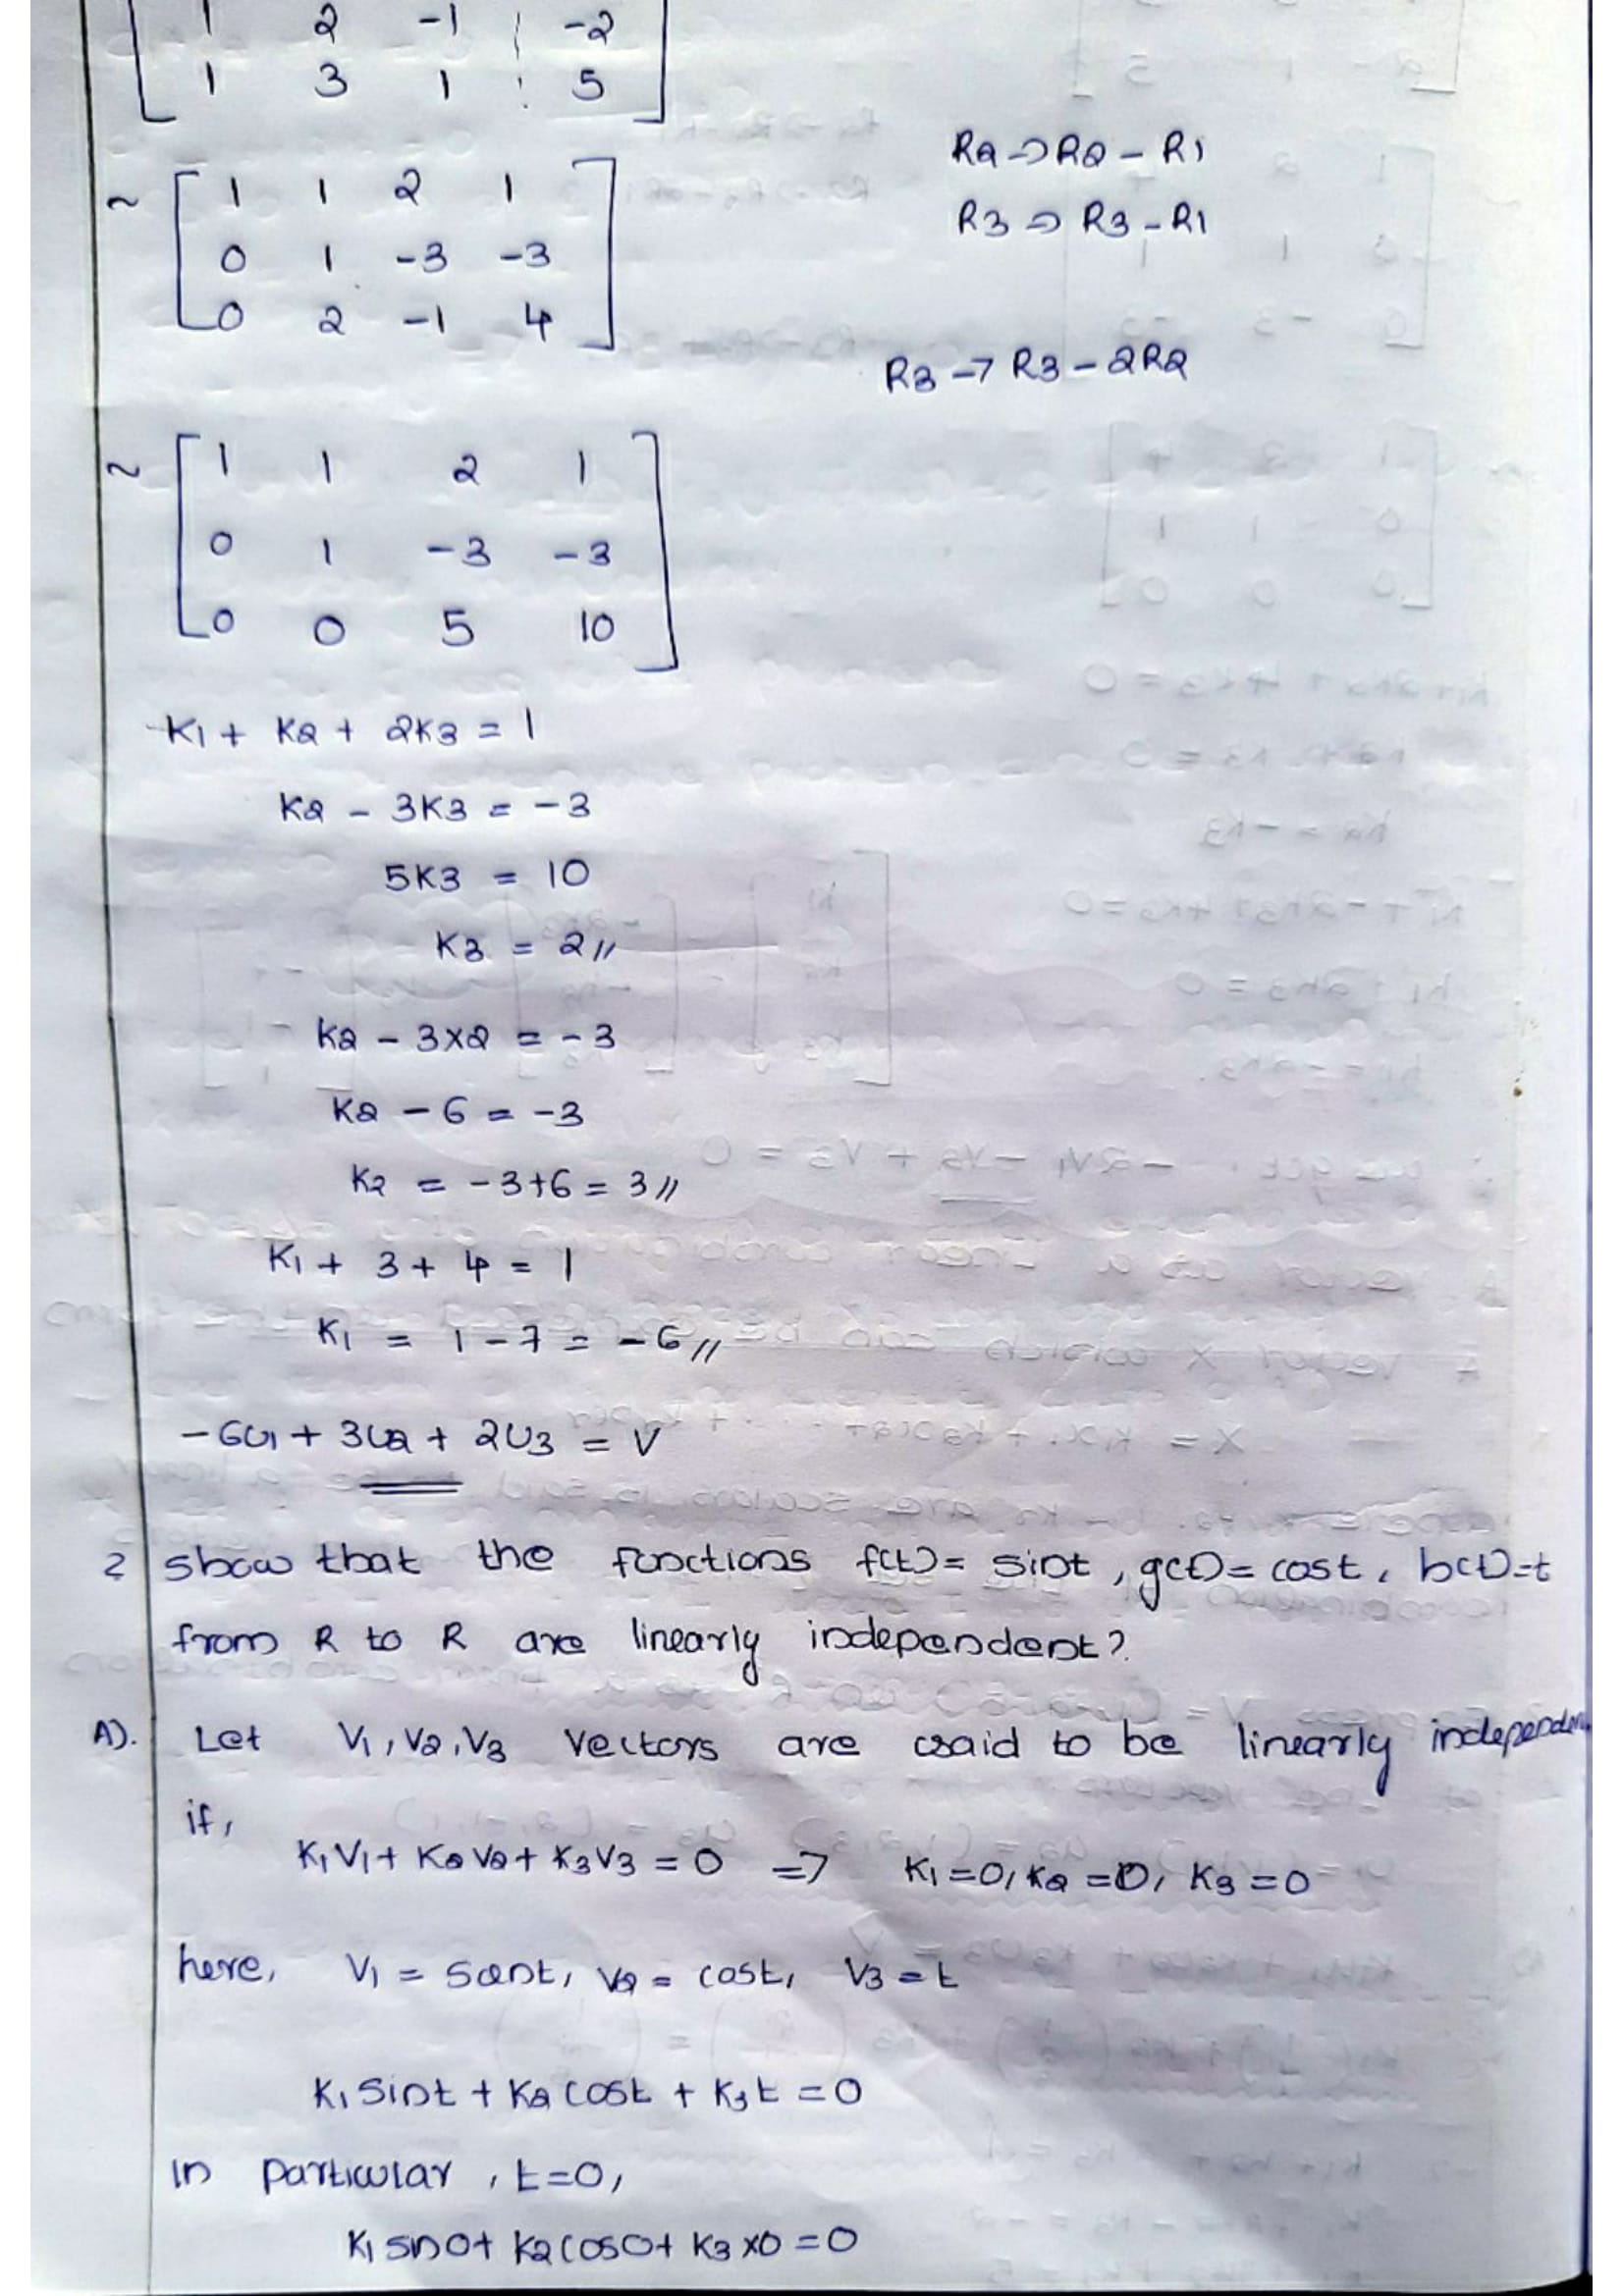 1 2 -1 -2
1 3 1 5
R2 → R2 - R1
~ 1 1 2 1
R3 → R3 - R1
0 1 -3 -3
0 2 -1 4
R3 → R3 - 2R2
~ 1 1 2 1
0 1 -3 -3
0 0 5 10
K1 + K2 + 2K3 = 1
K2 - 3K3 = -3
5K3 = 10
K3 = 2//
K2 - 3x2 = -3
K2 - 6 = -3
K2 = -3+6 = 3//
K1 + 3 + 4 = 1
K1 = 1 - 7 = -6//
-6u1 + 3u2 + 2u3 = V
2 show that the functions f(t) = sint, g(t) = cost, h(t)=t
from R to R are linearly independent?
A). Let V1, V2, V3 vectors are said to be linearly
if,
K1V1 + K2V2 + K3V3 = 0 => K1=0, K2=0, K3=0
here, V1 = sint, V2 = cost, V3 = t
K1 sint + K2 cost + K3t = 0
in particular, t=0,
K1 sin0 + K2 cos0 + K3 x0 = 0